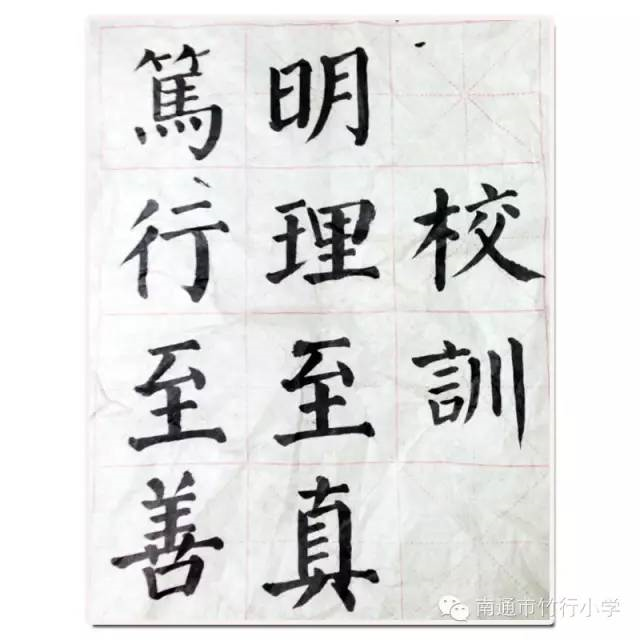 校訓
明理至真
篤行至善
南通市竹行小学